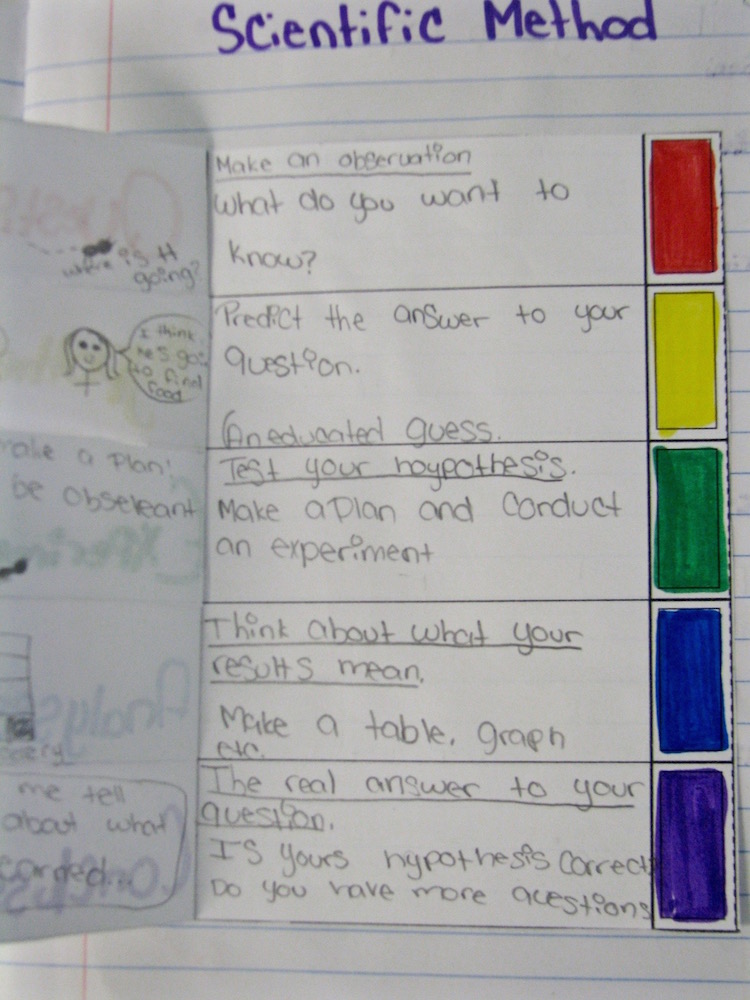 Scientific Method
Make an observation
What do you want to
know?
where is it
going?
Predict the answer to your
question.
An educated guess.
I think
he's
to find
food
Test your hoypothesis.
Make a Plan and conduct
an experiment
make a Plan!
be obseleant
Think about what your
results mean.
Make a table, graph
etc.
The real answer to your
question.
IS yours hypothesis correct
Do you have more questions
me tell
about what